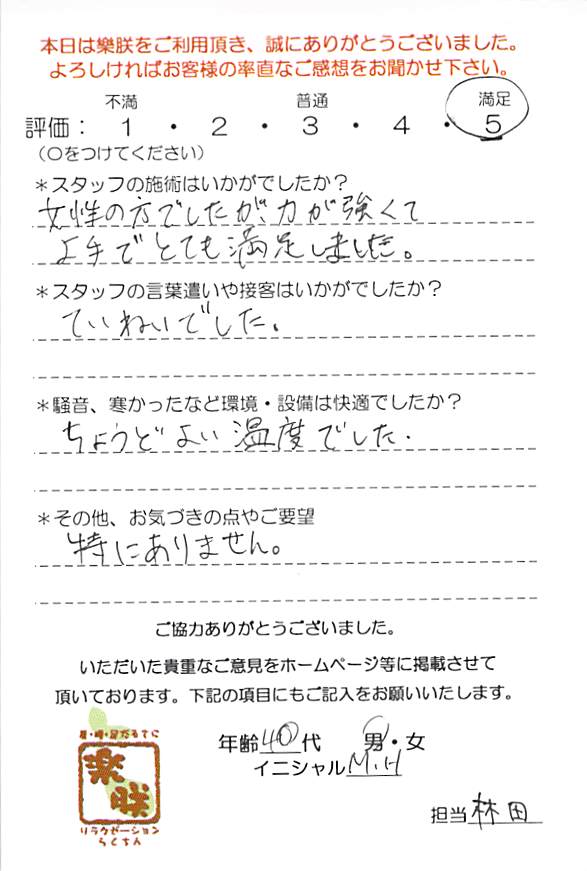 本日は樂朕をご利用頂き、誠にありがとうございました。
よろしければお客様の率直なご感想をお聞かせ下さい。
不満 普通 満足
評価： 1 ・ 2 ・ 3 ・ 4 ・ 5
（○をつけてください）
＊スタッフの施術はいかがでしたか？
女性の方でしたが、力が強くて
上手でとても満足しました。
＊スタッフの言葉遣いや接客はいかがでしたか？
ていねいでした。
＊騒音、寒かったなど環境・設備は快適でしたか？
ちょうどよい温度でした。
＊その他、お気づきの点やご要望
特にありません。
ご協力ありがとうございました。
いただいた貴重なご意見をホームページ等に掲載させて
頂いております。下記の項目にもご記入をお願いいたします。
年齢 40 代 男・女
イニシャル M.H
担当 林田
樂朕
リラクゼーション
らくちん